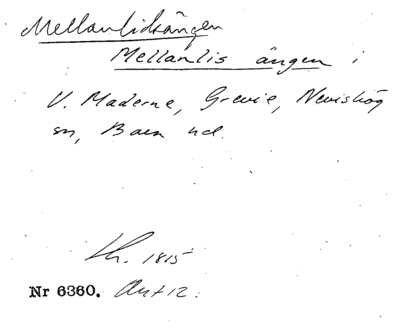 Mellanlidsängen
Mellanlis ängen i
V. Maderna, Grevie, Nevishög
sn, Bara hd.
Kh. 1815
Nr 6360. Akt 12.